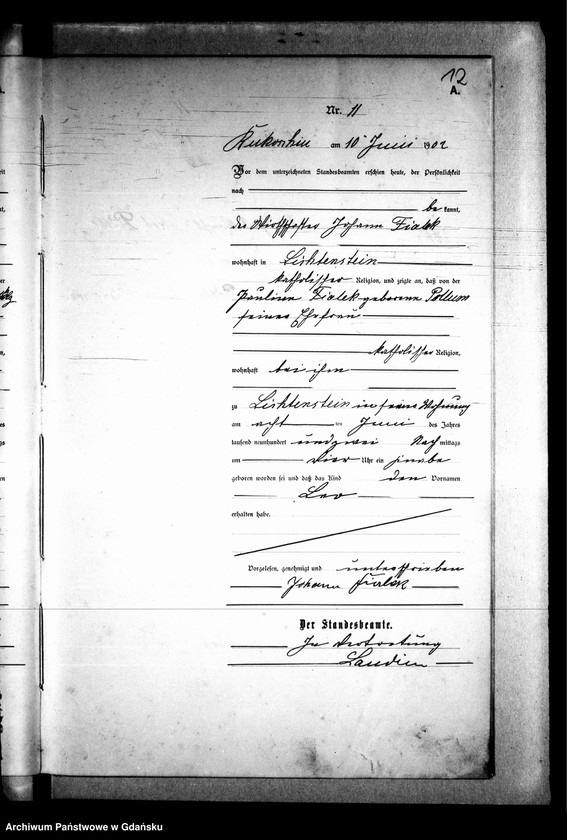 12
A.
Nr. 11
Kukoschin am 10 Juni 1902
Vor dem unterzeichneten Standesbeamten erschien heute, der Persönlichkeit
nach
be kannt,
der Wirthschafter Johann Fialek
wohnhaft in Lichtenstein
katholischer Religion, und zeigte an, daß von der
Pauline Fialek geborenen
seiner Ehefrau
katholischer Religion,
wohnhaft bei ihm
zu Lichtenstein in seiner Wohnung
am acht ten Juni des Jahres
tausend neunhundert und zwei Nach mittags
um vier Uhr ein Knabe
geboren worden sei und daß das Kind den Vornamen
Leo
erhalten habe.
Vorgelesen, genehmigt und unterschrieben
Johann Fialek
Der Standesbeamte.
In Vertretung
Archiwum Państwowe w Gdańsku